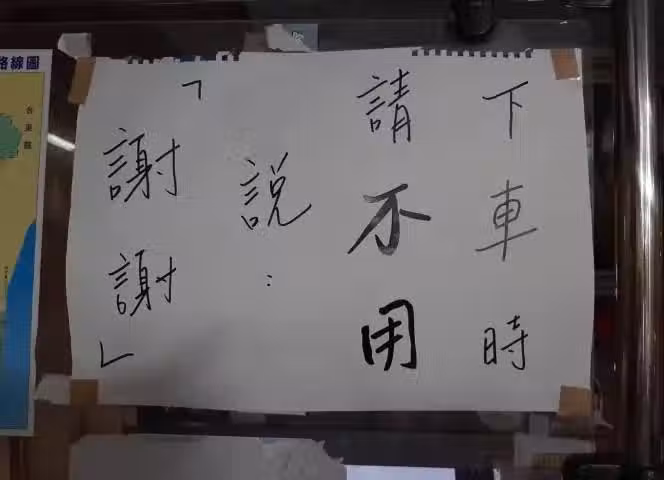 下車時
請不用
說：
「謝謝」
路線圖